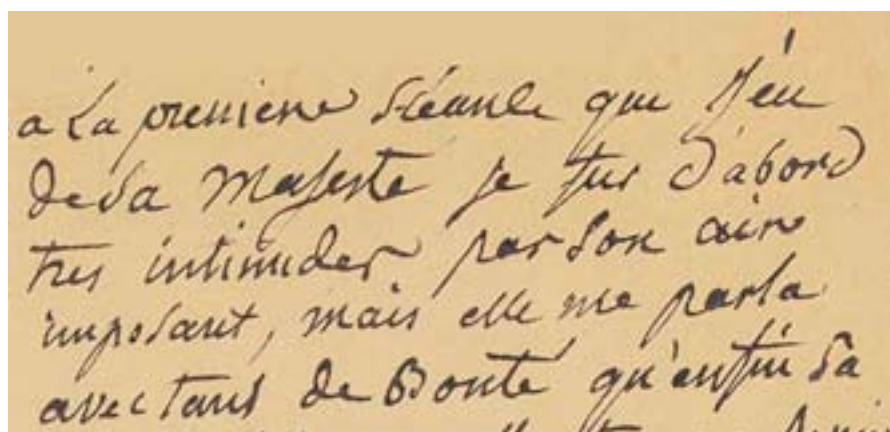 a La premiere Séance que j'eu
de Sa Majesté je fus d'abord
tres intimider par Son aire
imposant, mais elle me parla
avec tans de Bonté qu'enfin Sa